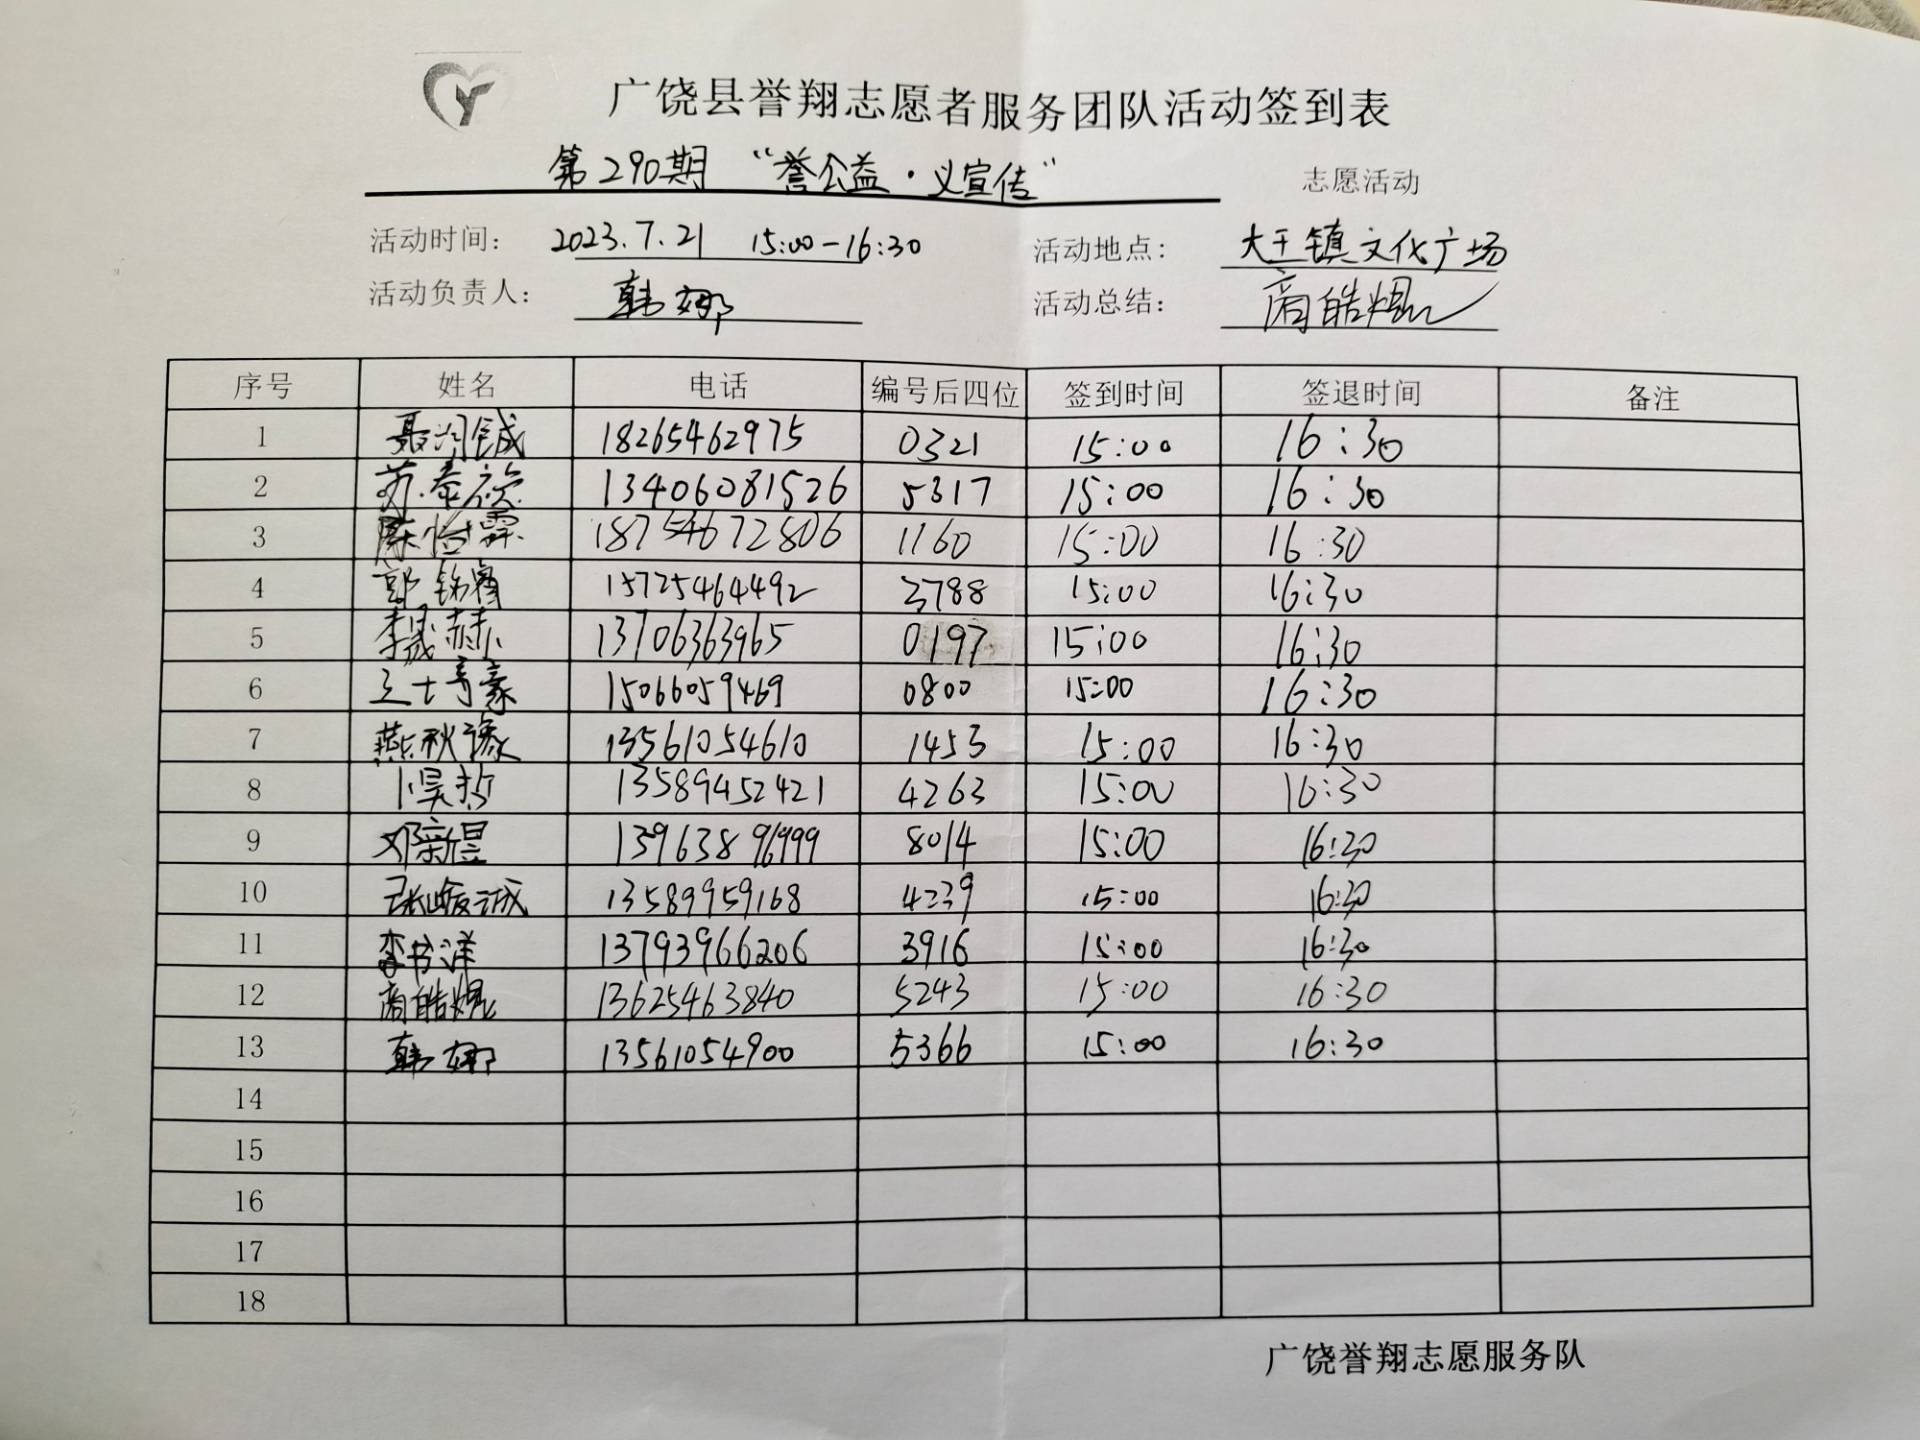 广饶县誉翔志愿者服务团队活动签到表
第290期 “誉公益·义宣传” 志愿活动
活动时间： 2023.7.21 15:00-16:30 活动地点： 大王镇文化广场
活动负责人： 韩娜 活动总结： 商皓焜
序号 姓名 电话 编号后四位 签到时间 签退时间 备注
1 18265462975 0321 15:00 16:30
2 13406081526 5317 15:00 16:30
3 18754672806 1160 15:00 16:30
4 15725464492 3788 15:00 16:30
5 李晟赫 13706363965 0197 15:00 16:30
6 15066059469 0800 15:00 16:30
7 燕秋豫 13561054610 1453 15:00 16:30
8 卜昊哲 13589452421 4263 15:00 16:30
9 邓新昱 13963896999 8014 15:00 16:30
10 张峻诚 13589959168 4239 15:00 16:30
11 李书洋 13793966206 3916 15:00 16:30
12 商皓焜 13625463840 5243 15:00 16:30
13 韩娜 13561054900 5366 15:00 16:30
14
15
16
17
18
广饶誉翔志愿服务队